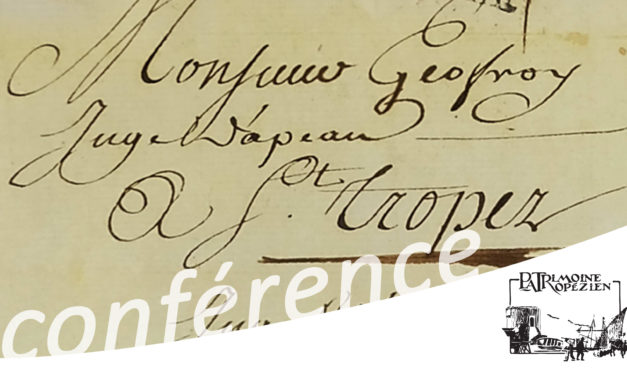 Monsieur Geoffroy
Juge d'apeau
A St. tropez
conférence
PATRIMOINE
TROPÉZIEN